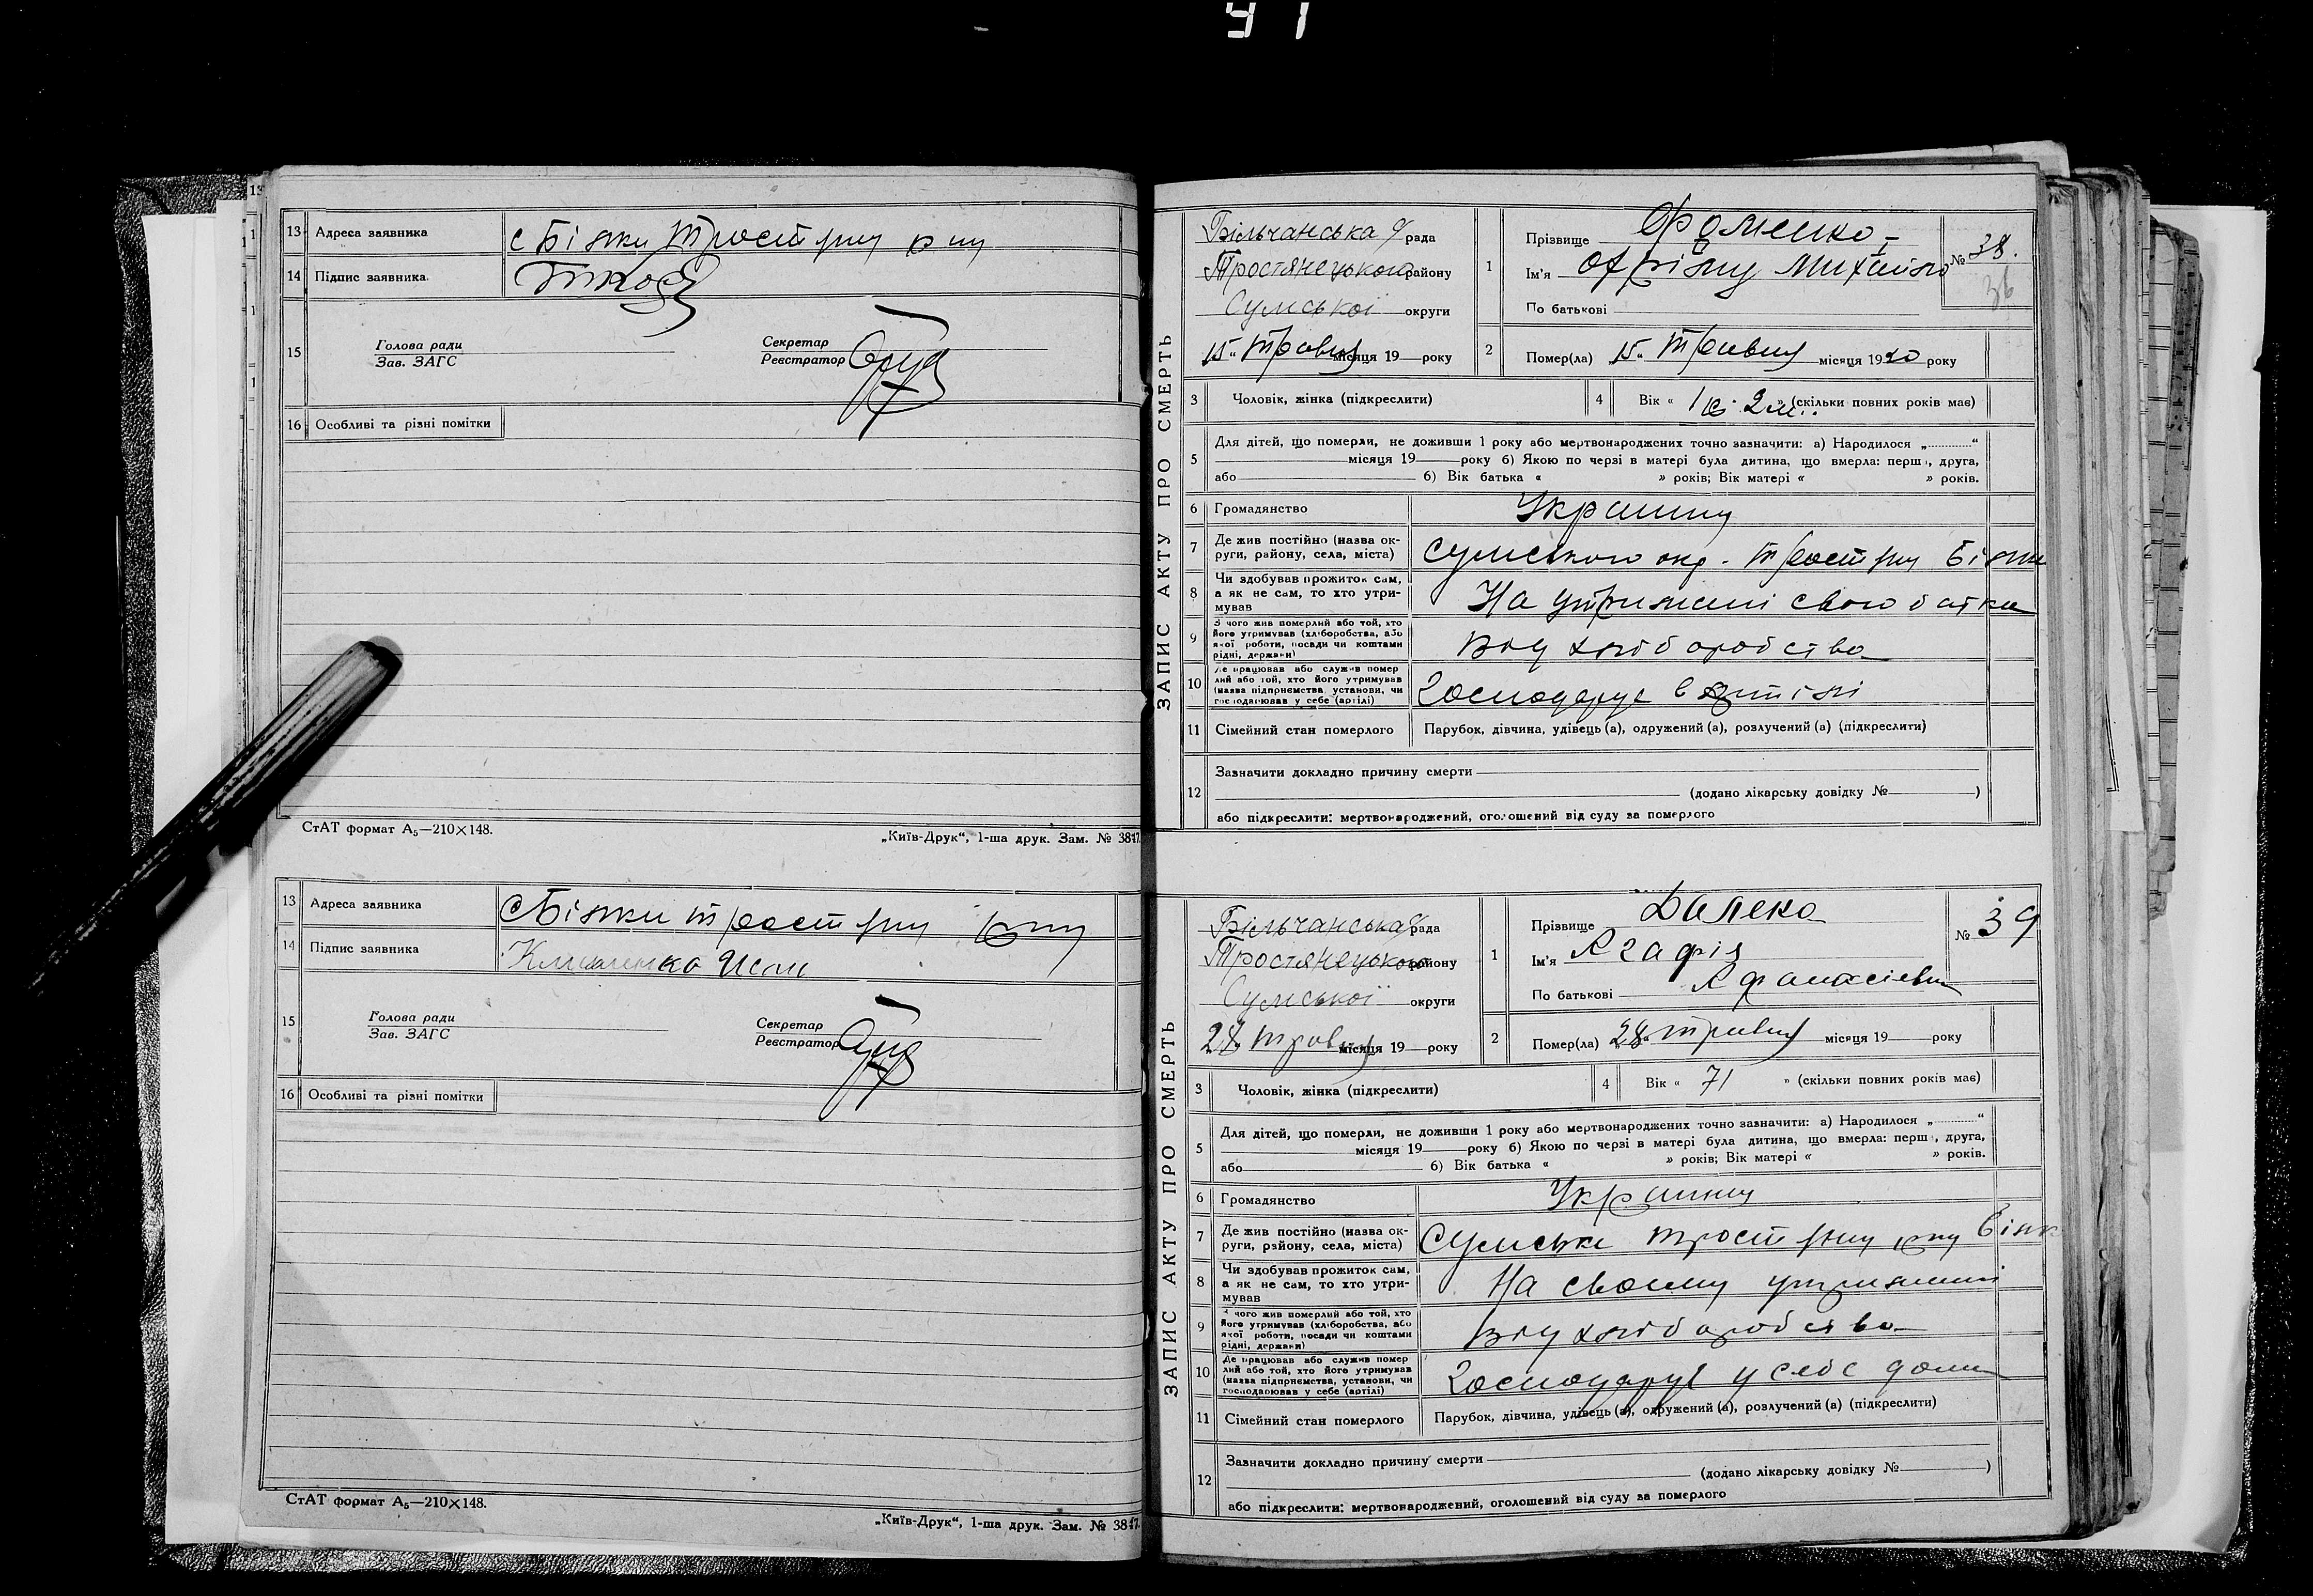 91
13 Адреса заявника
с Білки
14 Підпис заявника
15 Голова ради
Зав. ЗАГС
Секретар
Реєстратор
16 Особливі та різні помітки
СтАТ формат А5—210×148.
„Київ-Друк“, 1-ша друк. Зам. № 3847.
13 Адреса заявника
с Білки
14 Підпис заявника
15 Голова ради
Зав. ЗАГС
Секретар
Реєстратор
16 Особливі та різні помітки
СтАТ формат А5—210×148.
„Київ-Друк“, 1-ша друк. Зам. № 3847.
ЗАПИС АКТУ ПРО СМЕРТЬ
Більчанська рада
Тростянецького району
Сумської округи
„15“ травня місяця 19 року
1 Прізвище Фоменко
Ім'я Михайло
По батькові
№ 38.
36
2 Помер(ла) „15“ травня місяця 1920 року
3 Чоловік, жінка (підкреслити)
4 Вік « 1 р. 2 м. » (скільки повних років має)
5 Для дітей, що померли, не доживши 1 року або мертвонароджених точно зазначити: а) Народилося „ “
місяця 19 року б) Якою по черзі в матері була дитина, що вмерла: перша, друга,
або б) Вік батька « » років; Вік матері « » років.
6 Громадянство
7 Де жив постійно (назва ок-
руги, району, села, міста)
8 Чи здобував прожиток сам,
а як не сам, то хто утри-
мував
На утриманні свого батка
9 З чого жив померлий або той, хто
його утримував (хліборобства, або
якої роботи, посади чи коштами
рідні, держави)
від хліборобства
10 Де працював або служив помер
лий або той, хто його утримував
(назва підприємства, установи, чи
господарював у себе (артілі)
господарує в
11 Сімейний стан померлого Парубок, дівчина, удівець (а), одружений (а), розлучений (а) (підкреслити)
12 Зазначити докладно причину смерти
(додано лікарську довідку № )
або підкреслити: мертвонароджений, оголошений від суду за померлого
ЗАПИС АКТУ ПРО СМЕРТЬ
Більчанська рада
Тростянецького району
Сумської округи
„28“ травня місяця 19 року
1 Прізвище Далека
Ім'я Агафія
По батькові
№ 39
2 Помер(ла) „28“ травня місяця 19 року
3 Чоловік, жінка (підкреслити)
4 Вік « 71 » (скільки повних років має)
5 Для дітей, що померли, не доживши 1 року або мертвонароджених точно зазначити: а) Народилося „ “
місяця 19 року б) Якою по черзі в матері була дитина, що вмерла: перша, друга,
або б) Вік батька « » років; Вік матері « » років.
6 Громадянство
7 Де жив постійно (назва ок-
руги, району, села, міста)
8 Чи здобував прожиток сам,
а як не сам, то хто утри-
мував
На своему утриманні
9 З чого жив померлий або той, хто
його утримував (хліборобства, або
якої роботи, посади чи коштами
рідні, держави)
від хліборобства
10 Де працював або служив помер
лий або той, хто його утримував
(назва підприємства, установи, чи
господарював у себе (артілі)
господарує у себе дома
11 Сімейний стан померлого Парубок, дівчина, удівець (а), одружений (а), розлучений (а) (підкреслити)
12 Зазначити докладно причину смерти
(додано лікарську довідку № )
або підкреслити: мертвонароджений, оголошений від суду за померлого